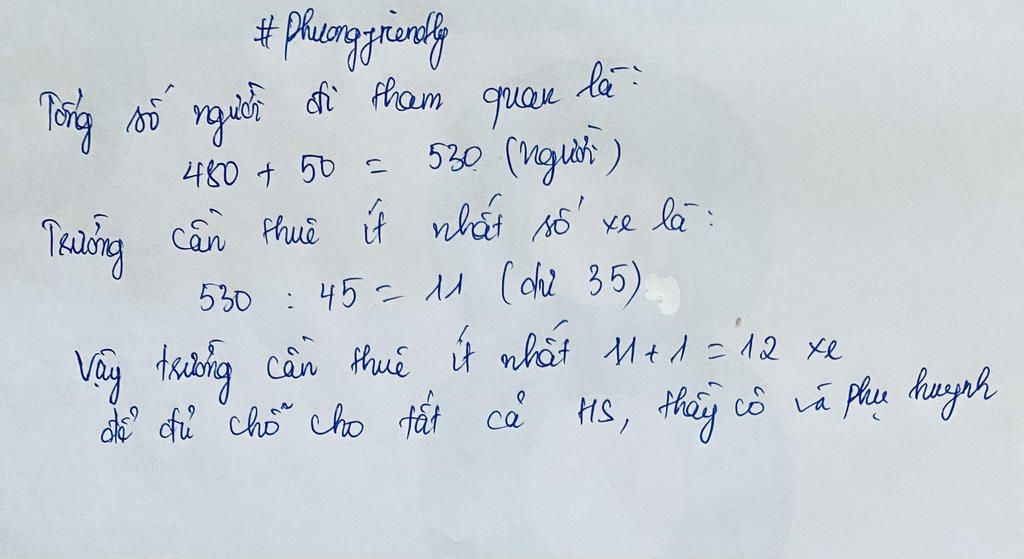 # Phuongfriendly
Tổng số người đi tham quan là:
480 + 50 = 530 (người)
Trường cần thuê ít nhất số xe là:
530 : 45 = 11 (dư 35)
Vậy trường cần thuê ít nhất 11 + 1 = 12 xe
để đủ chỗ cho tất cả HS, thầy cô và phụ huynh